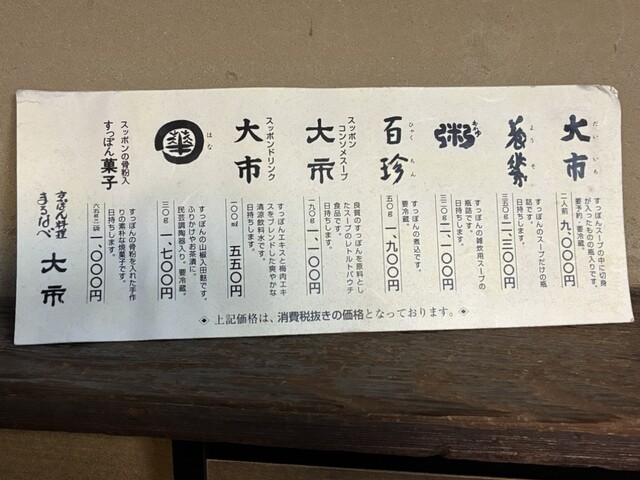 大市
だいいち
すっぽんスープの中に切身
が入ったもの
瓶入りです。
要予約・要冷蔵。
日持ちします。
二人前 九、〇〇〇円
ようそ
すっぽんのスープだけの瓶
詰です。
日持ちします。
三五〇g 二、三〇〇円
粥
おかゆ
すっぽんの雑炊用スープの
瓶詰です。
日持ちします。
三二〇g 二、一〇〇円
百珍
ひゃくちん
すっぽんの煮込です。
要冷蔵。
五〇g 一、九〇〇円
スッポン
コンソメスープ
大市
良質のすっぽんを原料とし
たスープのレトルトパウチ
食品です。
日持ちします。
一九〇g 一、一〇〇円
スッポンドリンク
大市
すっぽんエキスと梅肉エキ
スをブレンドした爽やかな
清涼飲料水です。
日持ちします。
一〇〇ml 五五〇円
華
はな
すっぽんの山椒入田麩です。
ふりかけやお茶漬に。
民芸調陶器入り。要冷蔵。
日持ちします。
三〇g 一、七〇〇円
スッポンの骨粉入
すっぽん菓子
すっぽんの骨粉を入れた手作
りの素朴な焼菓子です。
日持ちします。
一、〇〇〇円
すっぽん料理
まるなべ
大市
◈ 上記価格は、消費税抜きの価格となっております。◈